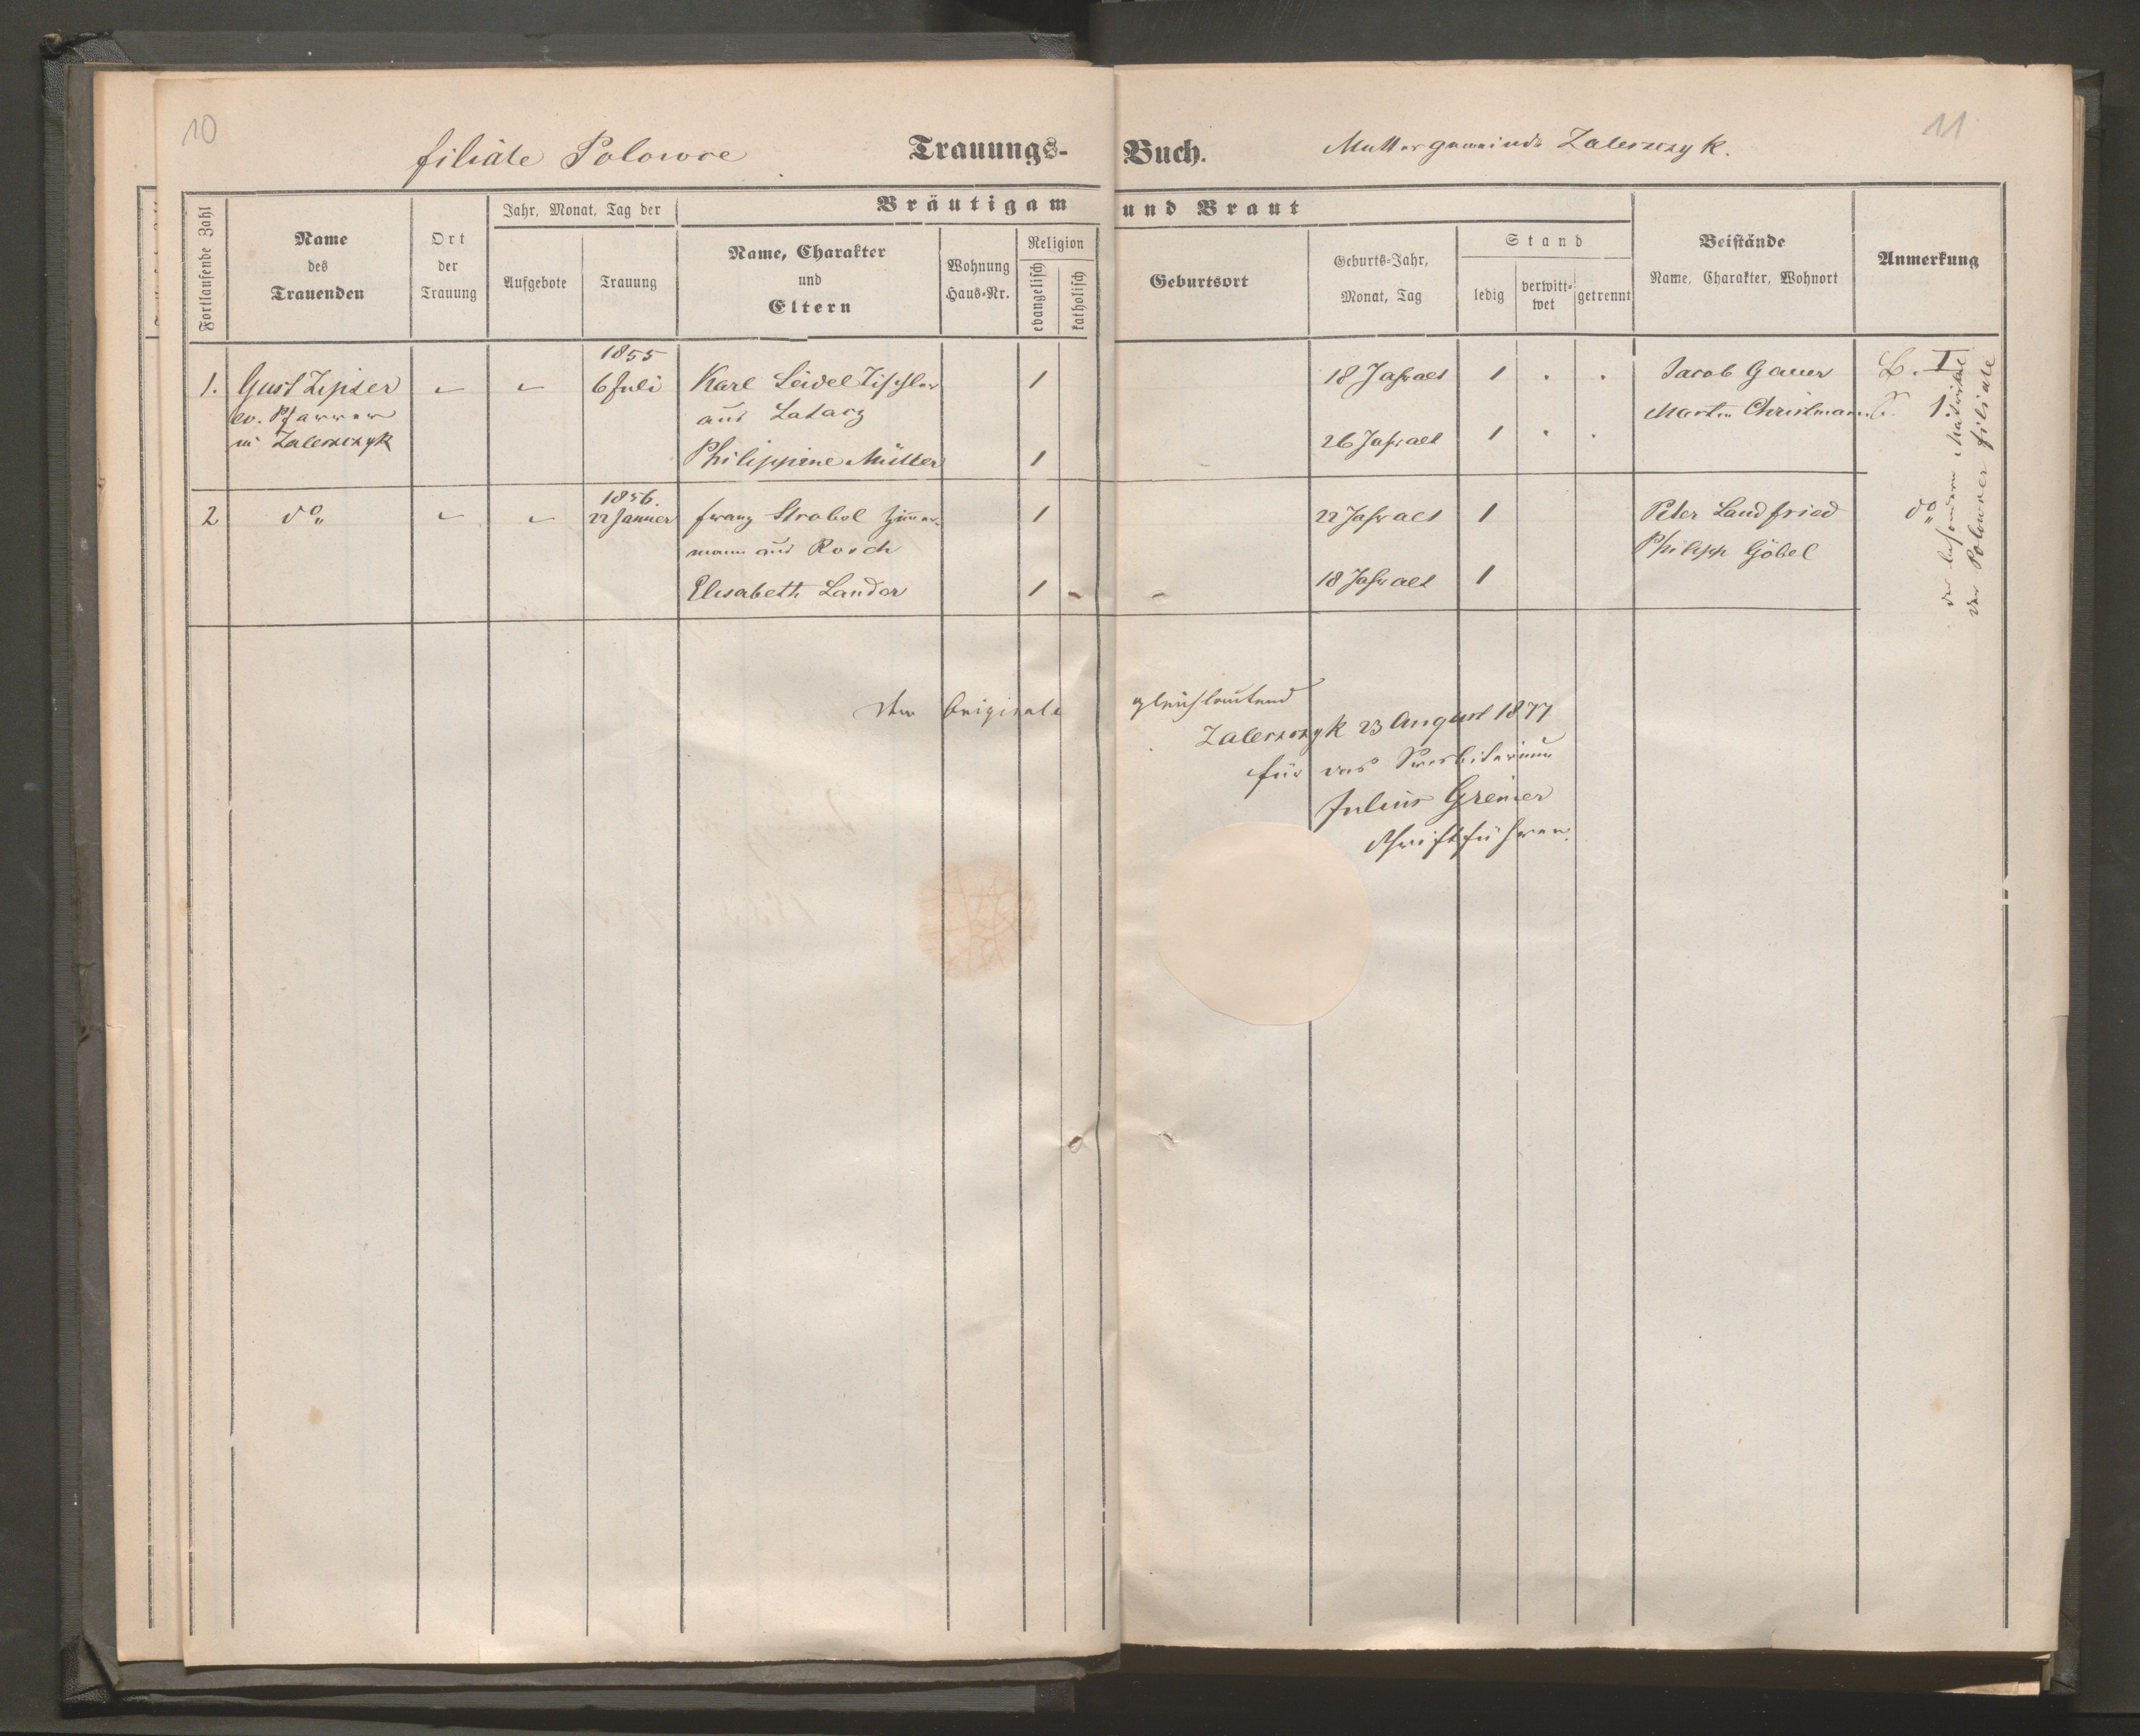 10
filiale Polowce
Trauungs-
Buch.
Muttergemeinde Zaleszczyk.
11
Fortlaufende Zahl
Name
des
Trauenden
Ort
der
Trauung
Jahr, Monat, Tag der
Aufgebote
Trauung
Bräutigam
und Braut
Name, Charakter
und
Eltern
Wohnung
Haus-Nr.
Religion
evangelisch
katholisch
Geburtsort
Geburts-Jahr,
Monat, Tag
Stand
ledig
verwitt-
wet
getrennt
Beistände
Name, Charakter, Wohnort
Anmerkung
1855
1. Gust Zipser 6 Juli Karl Seidel Tischler 1 18 Jahr alt 1 . . Jacob Gauer B. I
ev. Pfarrer aus Martin Christmann S. 1.
in Zaleszczyk Philippine Müller 1 26 Jahr alt 1 . .
der besondern Matrikel
der Polowcer filiale
1856.
2 do 22 Januer Franz Strobel Zimmer- 1 22 Jahr alt 1 Peter Landfried do
mann aus Rosch Philipp Göbel
Elisabeth Landor 1 - - 18 Jahr alt 1
Dem Originale gleichlautend
Zaleszczyk 23 August 1877
für das Presbiterium
Julius Greiner
Schriftführer.